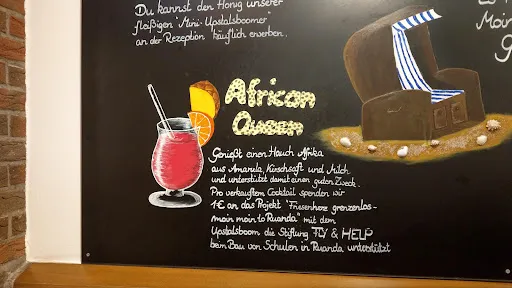 Du kannst den Honig unserer
fleißigen "Mini-Upstalsboomer"
an der Rezeption käuflich erwerben.
Moin
African
Queen
Genießt einen Hauch Afrika
aus Amarula, Kirschsaft und Milch
und unterstützt damit einen guten Zweck.
Pro verkauftem Cocktail spenden wir
1€ an das Projekt "Friesenherz grenzenlos-
moin moin to Ruanda" mit dem
Upstalsboom die Stiftung FLY & HELP
beim Bau von Schulen in Ruanda unterstützt